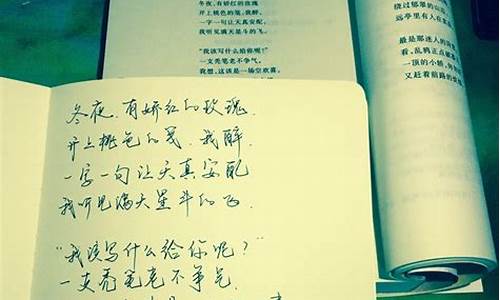 冬夜,有娇红的玫瑰
开上桃色的笺,我醉,
一字一句让天真安配,
我听见满天星斗的飞。
“我该写什么给你呢?”
一支秃笔老不争气。
我想,这该是一场空欢喜,
绕过郁翠的山
远亭里有人在
最是那迷人的
看,乱鸦正点破
一顶的小轿,
又赶着前路的
冬夜,有娇红的玫瑰,
开上桃色的笺,我醉,
一字一句让天真安配
我听见满天星斗的飞。
“我该写什么给你呢?”
一支秃笔老不争气。